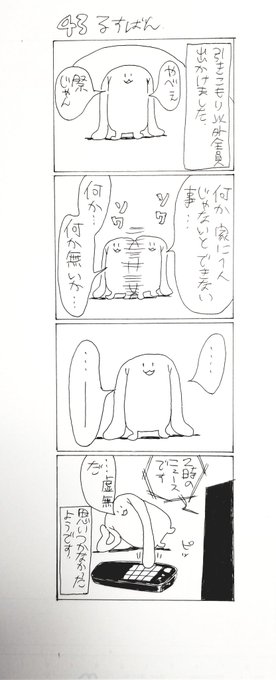 43 るすばん
引きこもり以外全員
出かけました。
やべぇ
祭
じゃん
何か 家に1人
じゃないとできない
事…
ソワ
ソワ
何か…
何か無いか…
……
……
2時の
ニュース
です
ピッ
…虚無
だ…
思いつかなかった
ようです。